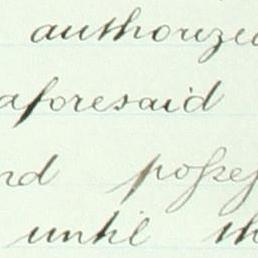 authorized
aforesaid
nd posses
until th